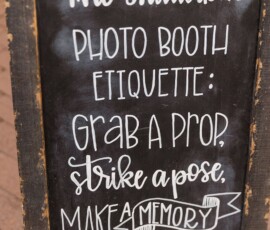 PHOTO BOOTH
ETIQUETTE:
Grab A Prop,
strike a pose,
MAKE A MEMORY